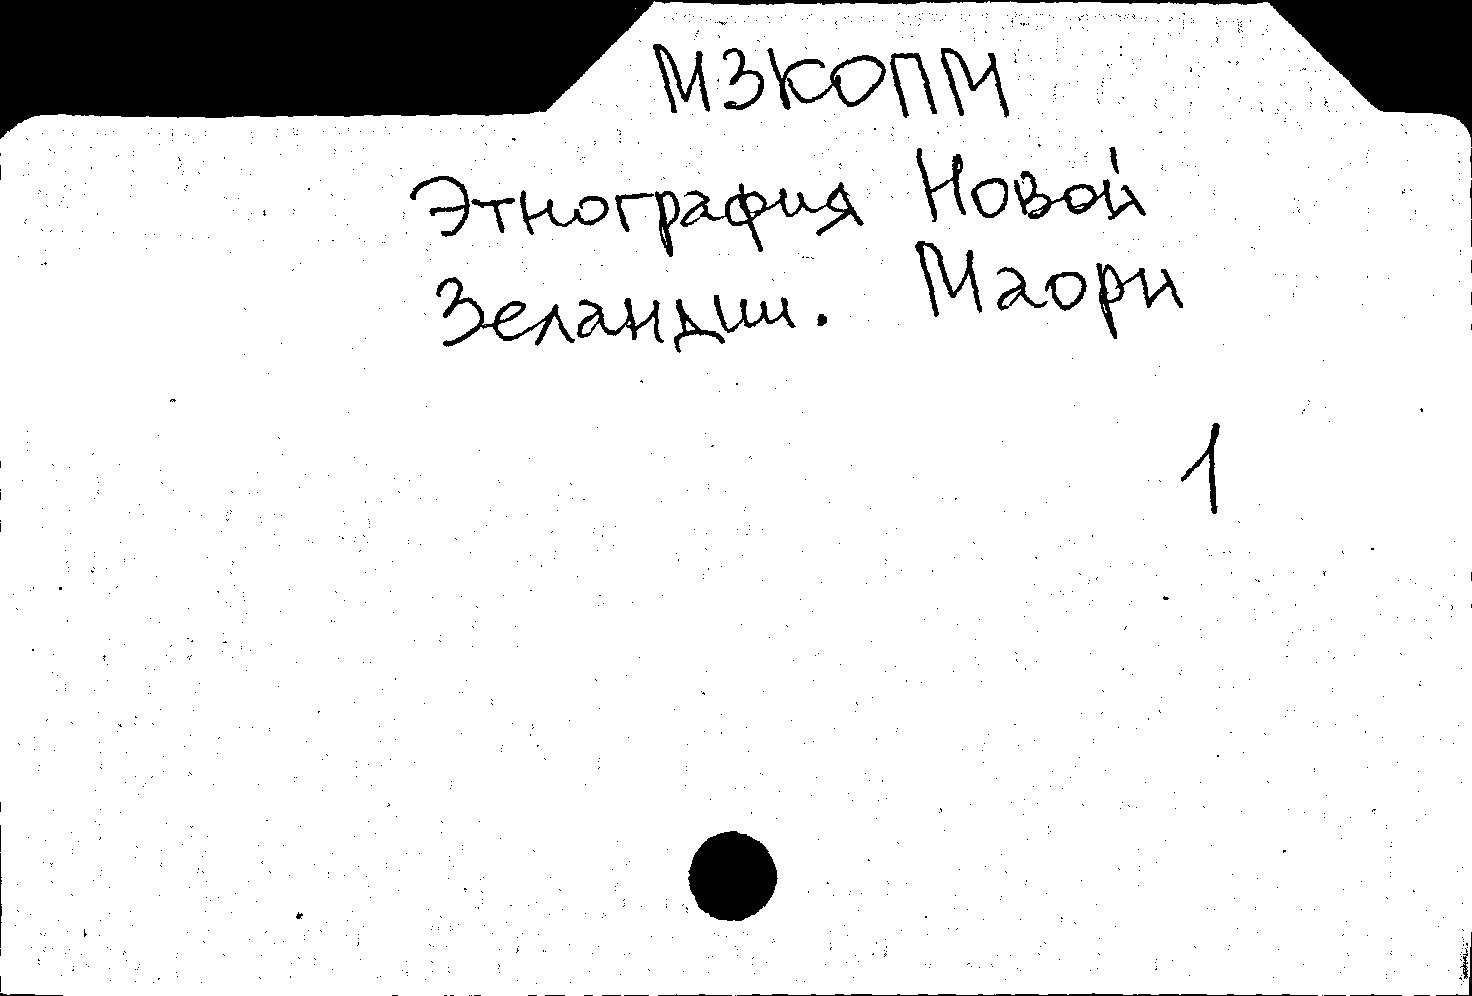 МЗКОПМ
Этнография Новой
Зеландии. Маори
1